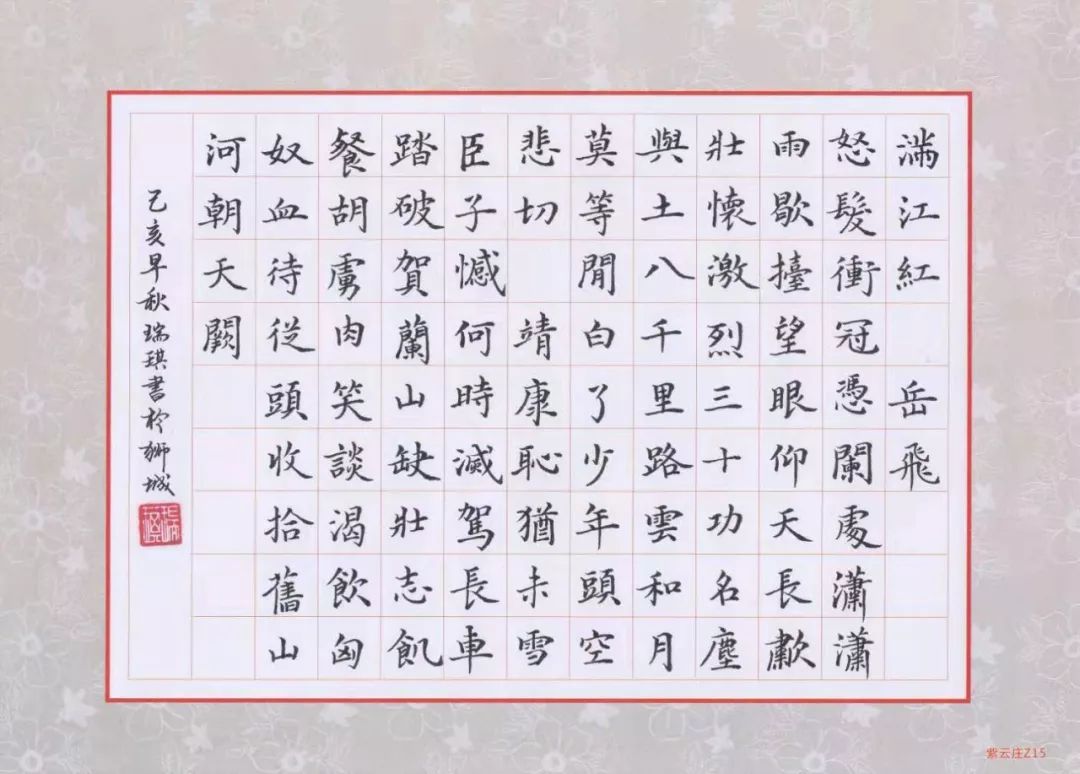 滿江紅 岳飛
怒髮衝冠憑闌處瀟瀟
雨歇擡望眼仰天長歗
壯懷激烈三十功名塵
與土八千里路雲和月
莫等閒白了少年頭空
悲切 靖康恥猶未雪
臣子憾何時滅駕長車
踏破賀蘭山缺壯志飢
餐胡虜肉笑談渴飲匈
奴血待從頭收拾舊山
河朝天闕
己亥早秋瑞琪書於獅城
紫云庄Z15